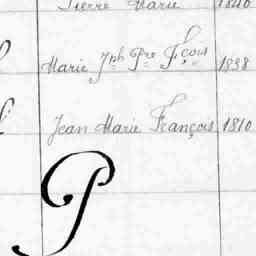 Pierre Marie 1840
Marie Jph Pre Fçois 1838
Jean Marie François 1810
P